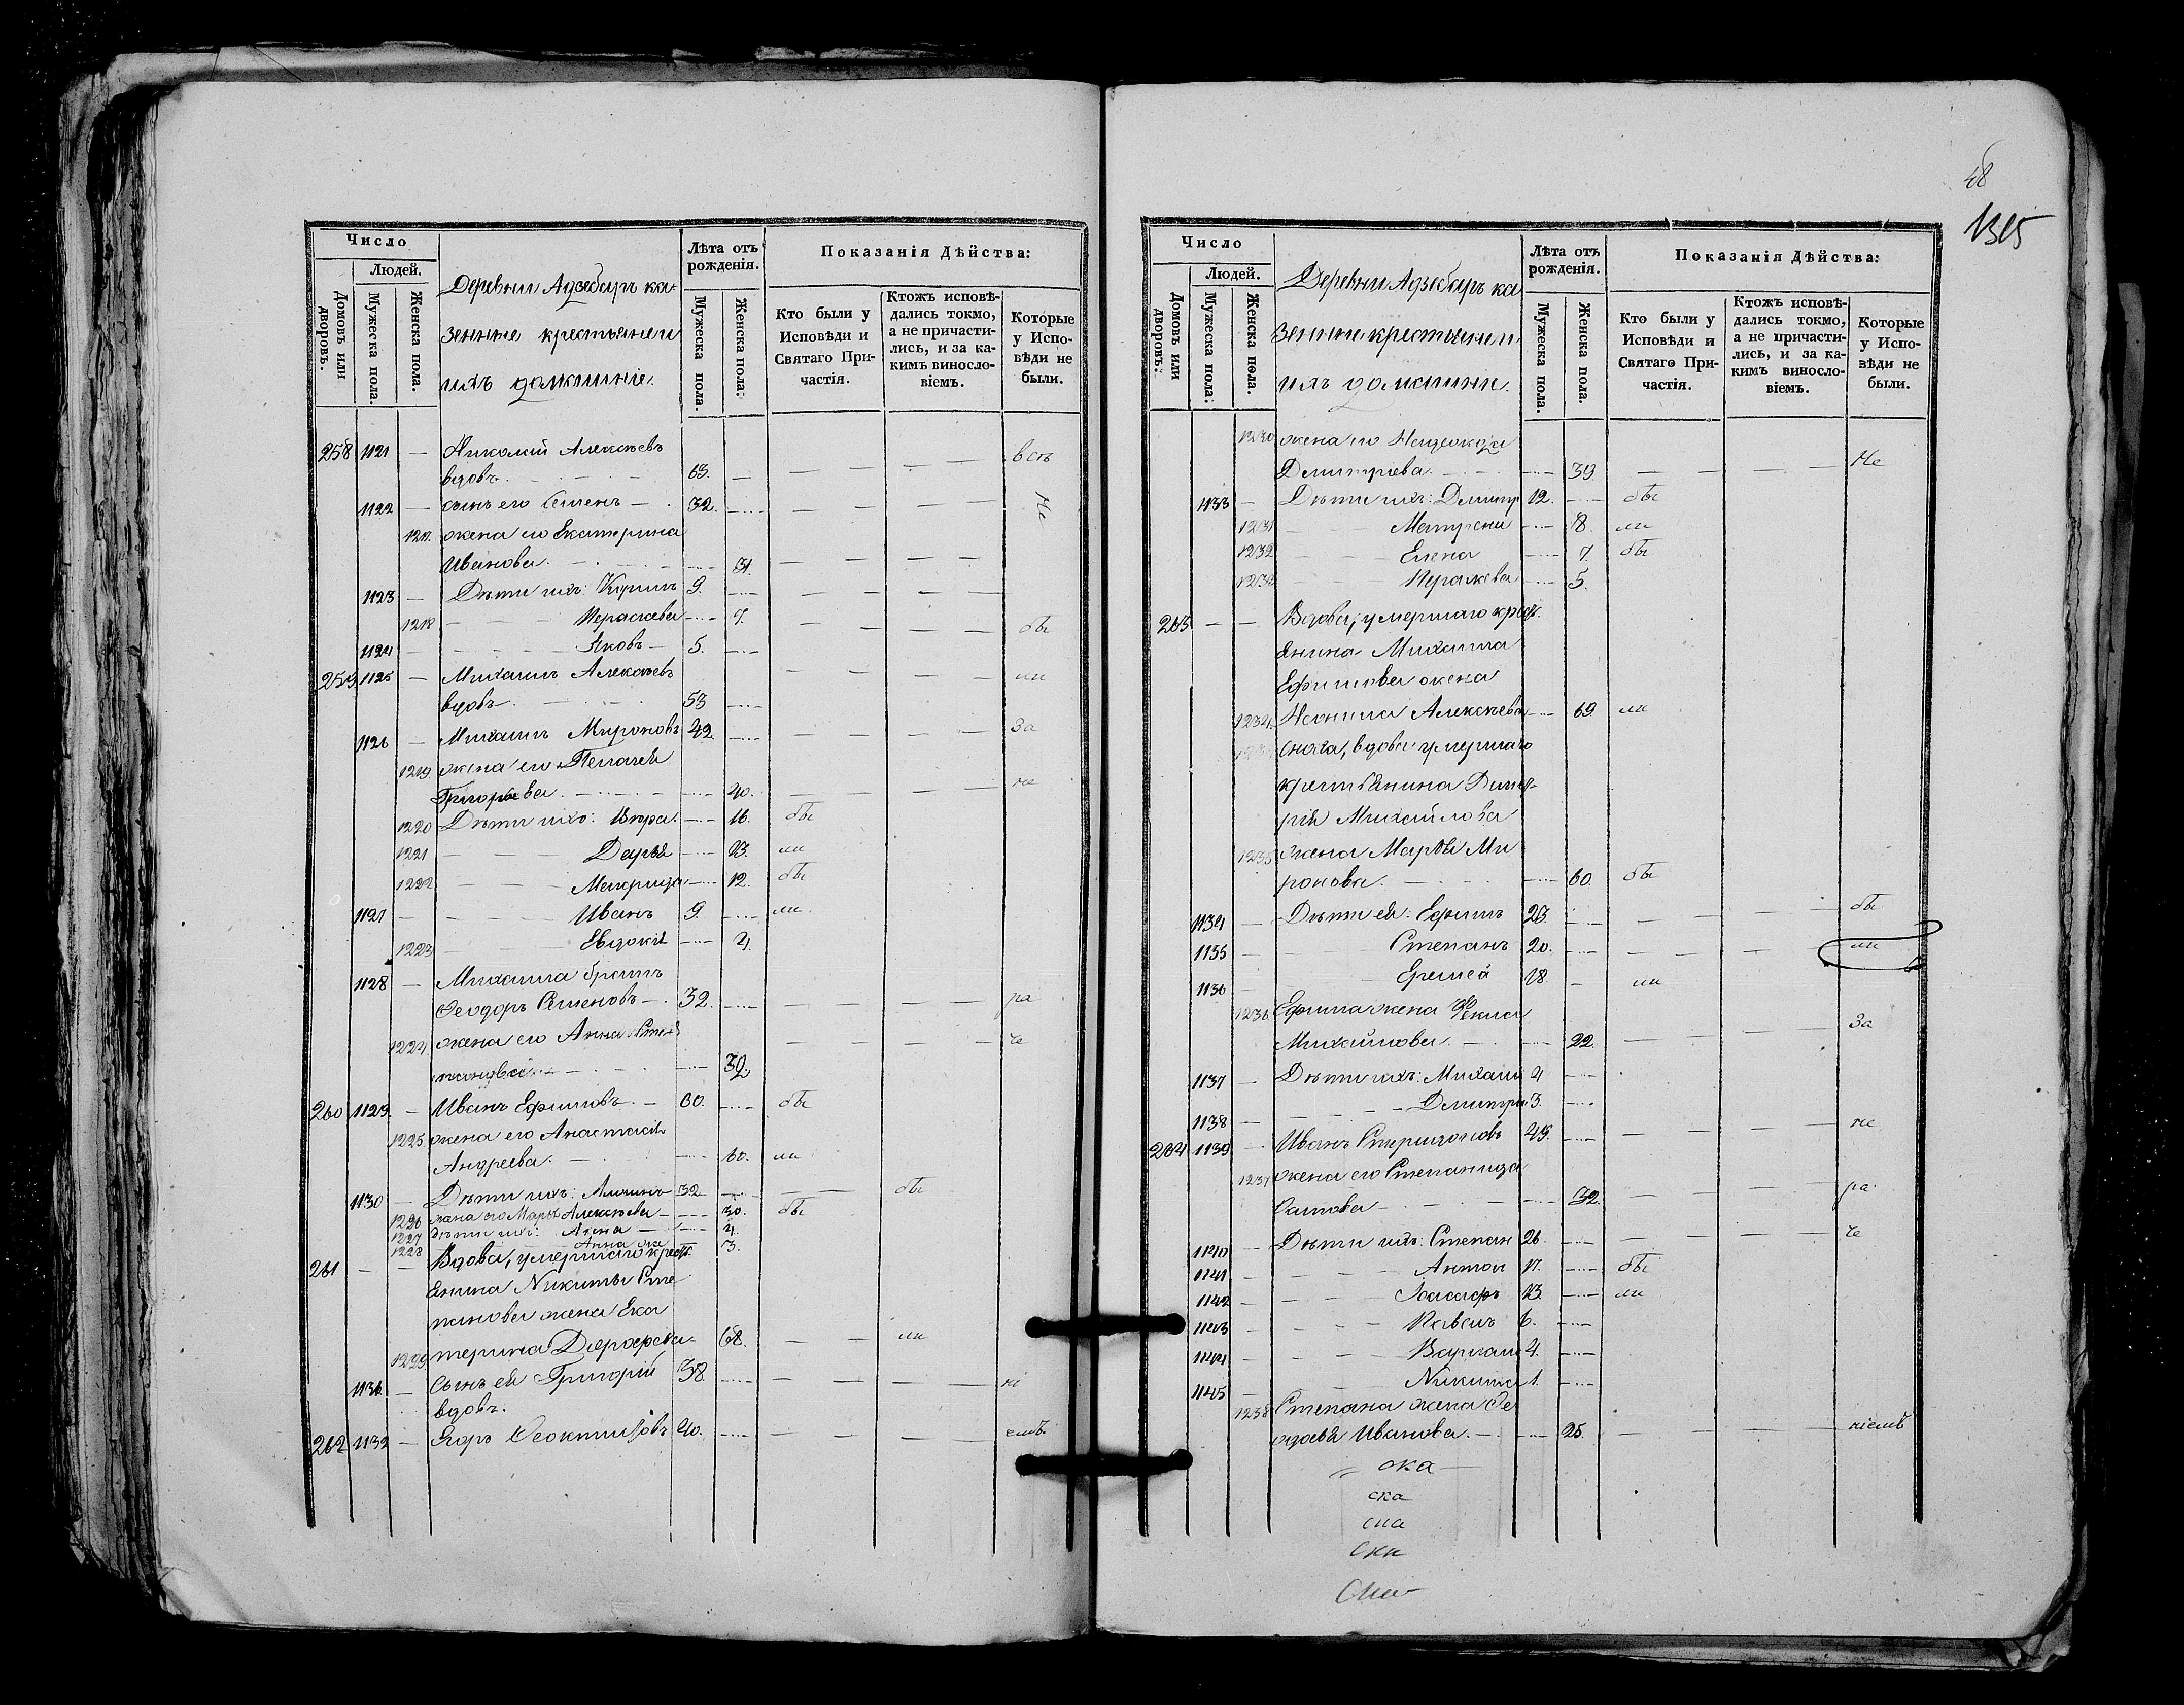 Число
Людей.
Домовъ или дворовъ.
Мужеска пола.
Женска пола.
Деревни Адзебиръ ка-
зенные крестьяне и
ихъ домашніе.
Лѣта отъ рожденія.
Мужеска пола.
Женска пола.
Показанія Дѣйства:
Кто были у Исповѣди и Святаго При-частія.
Ктожъ исповѣ-дались токмо, а не причасти-лись, и за ка-кимъ винослο-віемъ.
Которые у Испо-вѣди не были.
258 1121 — Николай Алексѣевъ
вдовъ. 63. — всѣ
1122 — сынъ его Семенъ — 32. Не
1217. жена его Екатерина
Иванова. 31.
1123 — Дѣти ихъ: 9.
1218 Параскева 7. бы
1124 Яковъ — 5.
259 1125 — Михаилъ Алексѣевъ ли
вдовъ 53
1126 — Михаилъ Мироновъ 42. За
1219 жена его Пелагея
Григорьева. 40. не
1220 Дѣти ихъ: Вѣра. 16. бы
1221 Дарья 13. ли
1222 12. бы
1127 Иванъ 9. ли
1223 Евдокія 4.
1128 — Михаила братъ
Ѳеодоръ Семеновъ — 32. ра
1224 жена его Анна Сте- че
панова 32.
260 1129. — Иванъ Ефимовъ. — 60. бы
1225 жена его Анастасія
Андреева. 60. ли
1130 — Дѣти ихъ: 32 бы
1226 жена его Марья Алексѣева — 30. бы
1227 Дѣти ихъ: Анна — 4.
1228 Анна же 3.
261 — — Вдова, умершаго крест
янина Никиты Сте
панова жена Ека
1229 терина 68. ли
1131. — Сынъ ея Григорій 38 ні
вдовъ.
262 1132 — Егоръ Ѳеоктистовъ 40. емъ
48
1315
Число
Людей.
Домовъ или дворовъ.
Мужеска пола.
Женска пола.
Деревни Адзебиръ ка
зенные крестьяне и
ихъ домашніе.
Лѣта отъ рожденія.
Мужеска пола.
Женска пола.
Показанія Дѣйства:
Кто были у Исповѣди и Святаго При-частія.
Ктожъ исповѣ-дались токмо, а не причасти-лись, и за ка-кимъ винослο-віемъ.
Которые у Испо-вѣди не были.
1230 жена его
Дмитріева. 39 Не
1133 — Дѣти ихъ: Дмитр 12. бы
1231 Матрена 8. ли
1232 Елена 7 бы
1233 Параскева 5.
263 — — Вдова, умершаго крест.
янина Михаила
Ефимова жена
1234. Неонила Алексѣева 69. ли
сноха, вдова умершаго
крестьянина Дмит-
рія Михайлова
1235 жена Марѳа Ми
ронова. 60. бы
1134 — Дѣти ея: Ефимъ 23. бы
1135 Степанъ 20. ли
1136 Еремей 18 ли
1236 Ефима жена Ѳекла
Михайлова. 22. За
1137 — Дѣти ихъ: Михаил 4
1138 — Дмитрій 3.
264 1139 — Иванъ 49. не
1237 жена его Степанида
32. ра
1140 — Дѣти ихъ: Степан 26. че
1141 Антон 17. бы
1142 13. ли
1143 6.
1144 Варлам 4.
1145 Никита 1.
1238 Степана жена Ѳе
одосья Иванова. 25. ніемъ